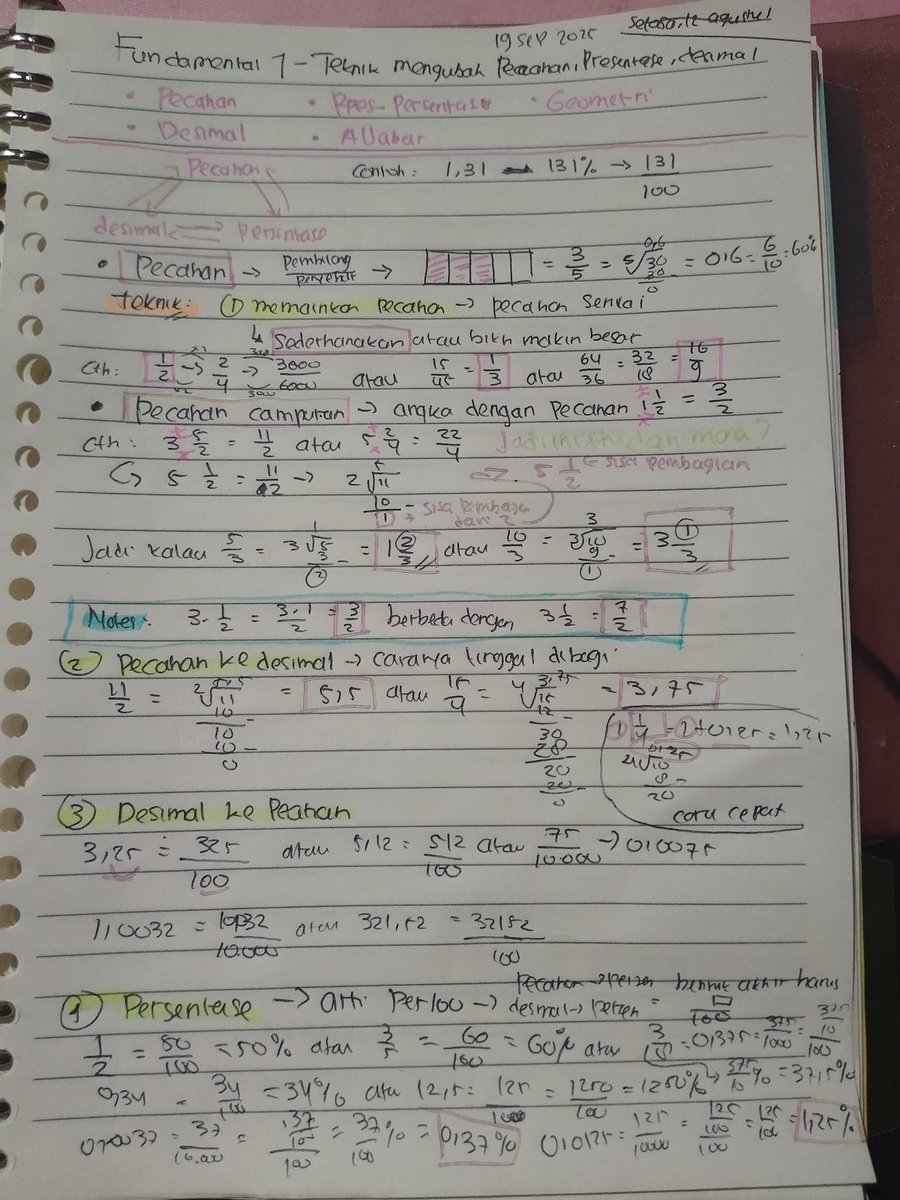 19 Sep 2025 Selasa, 12 agustus
Fundamental 1 - Teknik mengubah Pecahan, Presentase, desimal
• Pecahan • Pres- Persentase • Geometri
• Desimal • Aljabar
Pecahan Contoh: 1,31 → 131% → 131/100
desimal Persentase
• Pecahan → pembilang/penyebut → = 3/5 = 5√30 0,6 30 0 = 0,6 = 6/10 = 60%
Teknik: ① memainkan pecahan → pecahan senilai
↳ Sederhanakan atau bikin makin besar
Cth: 1/2 → 2/4 → 3000/6000 atau 15/45 = 1/3 atau 64/36 = 32/18 = 16/9
• Pecahan campuran → angka dengan pecahan 1 1/2 = 3/2
Cth: 3 5/2 = 11/2 atau 5 2/4 = 22/4 Jadi ini itu dari mana?
5 1/2 = 11/2 → 2√11 5 10 1 → sisa pembagi dari 2 → 5 1/2 ← sisa pembagian
Jadi kalau 5/3 = 3√5 1 3 2 = 1 2/3 atau 10/3 = 3√10 3 9 1 = 3 1/3
Notes: 3 . 1/2 = 3.1/2 = 3/2 berbeda dengan 3 1/2 = 7/2
② Pecahan ke desimal → caranya tinggal dibagi
11/2 = 2√11 5,5 10 10 10 0 = 5,5 atau 15/4 = 4√15 3,75 12 30 28 20 20 0 = 3,75
1 1/4 = 1+0,25 = 1,25
4√10 0,25 8 20
cara cepat
③ Desimal ke Pecahan
3,25 = 325/100 atau 5,12 = 512/100 atau 75/10.000 → 0,0075
1,0032 = 10032/10.000 atau 321,52 = 32152/100
① Persentase → arti per 100 → desimal → persen = bentuk akhir harus □/100
1/2 = 50/100 = 50% atau 3/5 = 60/100 = 60% atau 3/8 = 0,375 = 375/1000 = 375/10/100
0,34 = 34/100 = 34% atau 12,5 = 125/10 = 1250/100 = 1250% → 375/10% = 37,5%
0,0037 = 37/10.000 = 37/100/100 = 37/100% = 0,37% 0,0125 = 125/10000 = 125/100/100 = 125/100 = 1,25%